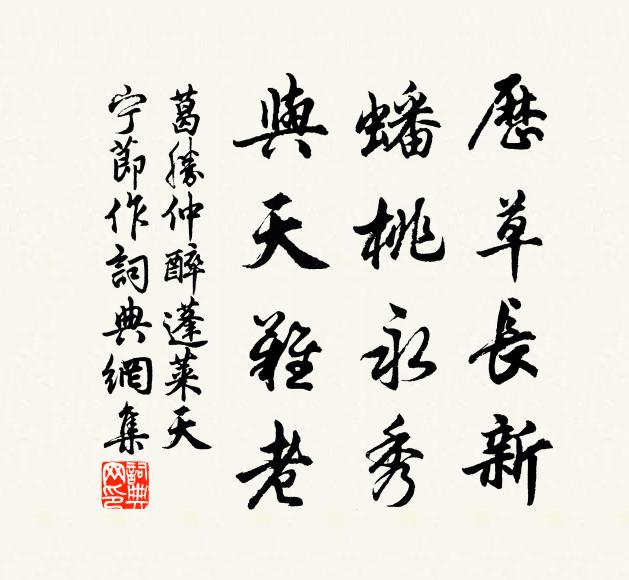 歷草長新
蟠桃永秀
與天難老
葛勝仲醉蓬萊天
宁節作詞典網集
詞典網印